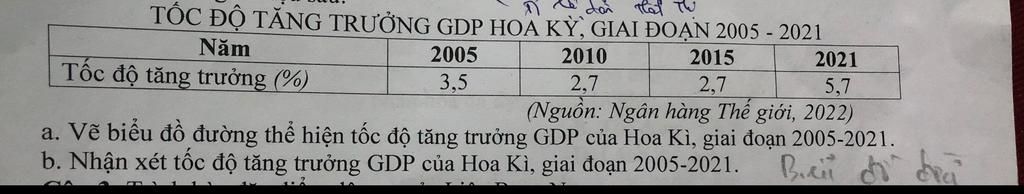 TỐC ĐỘ TĂNG TRƯỞNG GDP HOA KỲ, GIAI ĐOẠN 2005 - 2021
Năm 2005 2010 2015 2021
Tốc độ tăng trưởng (%) 3,5 2,7 2,7 5,7
(Nguồn: Ngân hàng Thế giới, 2022)
a. Vẽ biểu đồ đường thể hiện tốc độ tăng trưởng GDP của Hoa Kì, giai đoạn 2005-2021.
b. Nhận xét tốc độ tăng trưởng GDP của Hoa Kì, giai đoạn 2005-2021.